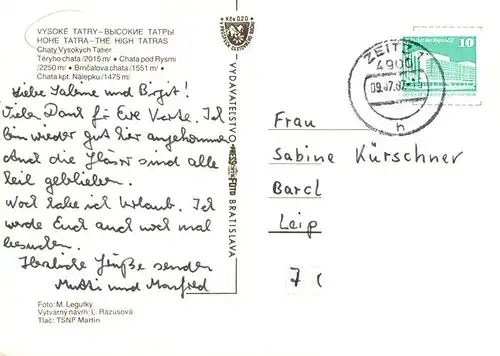 VYSOKÉ TATRY – ВЫСОКИЕ ТАТРЫ
HOHE TATRA – THE HIGH TATRAS
Chaty Vysokých Tatier
Téryho chata /2015 m/ • Chata pod Rysmi
/2250 m/ • Brnčalova chata /1551 m/ •
Chata kpt. Nálepku /1475 m/
Liebe Sabine und Birgit!
Vielen Dank für Eure Karte. Ich
bin wieder gut hier angekommen
Auch die Gläser sind alle
heil geblieben.
Noch habe ich Urlaub. Ich
werde Euch auch noch mal
besuchen.
Herzliche Grüße senden
Mutti und Manfred
Foto: M. Legutky
Výtvarný návrh: L. Rázusová
Tlač: TSNP Martin
Kčs 0,20
VYDAVATEĽSTVO
BRATISLAVA
ZEITZ 1
4900
09.07.87
h
10
Frau
Sabine Kürschner
Barcl
Leip
7 (